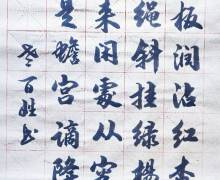 板润沾红杏
绳斜挂绿楊
来闲處从容
是蟾宫谪降
老百姓书